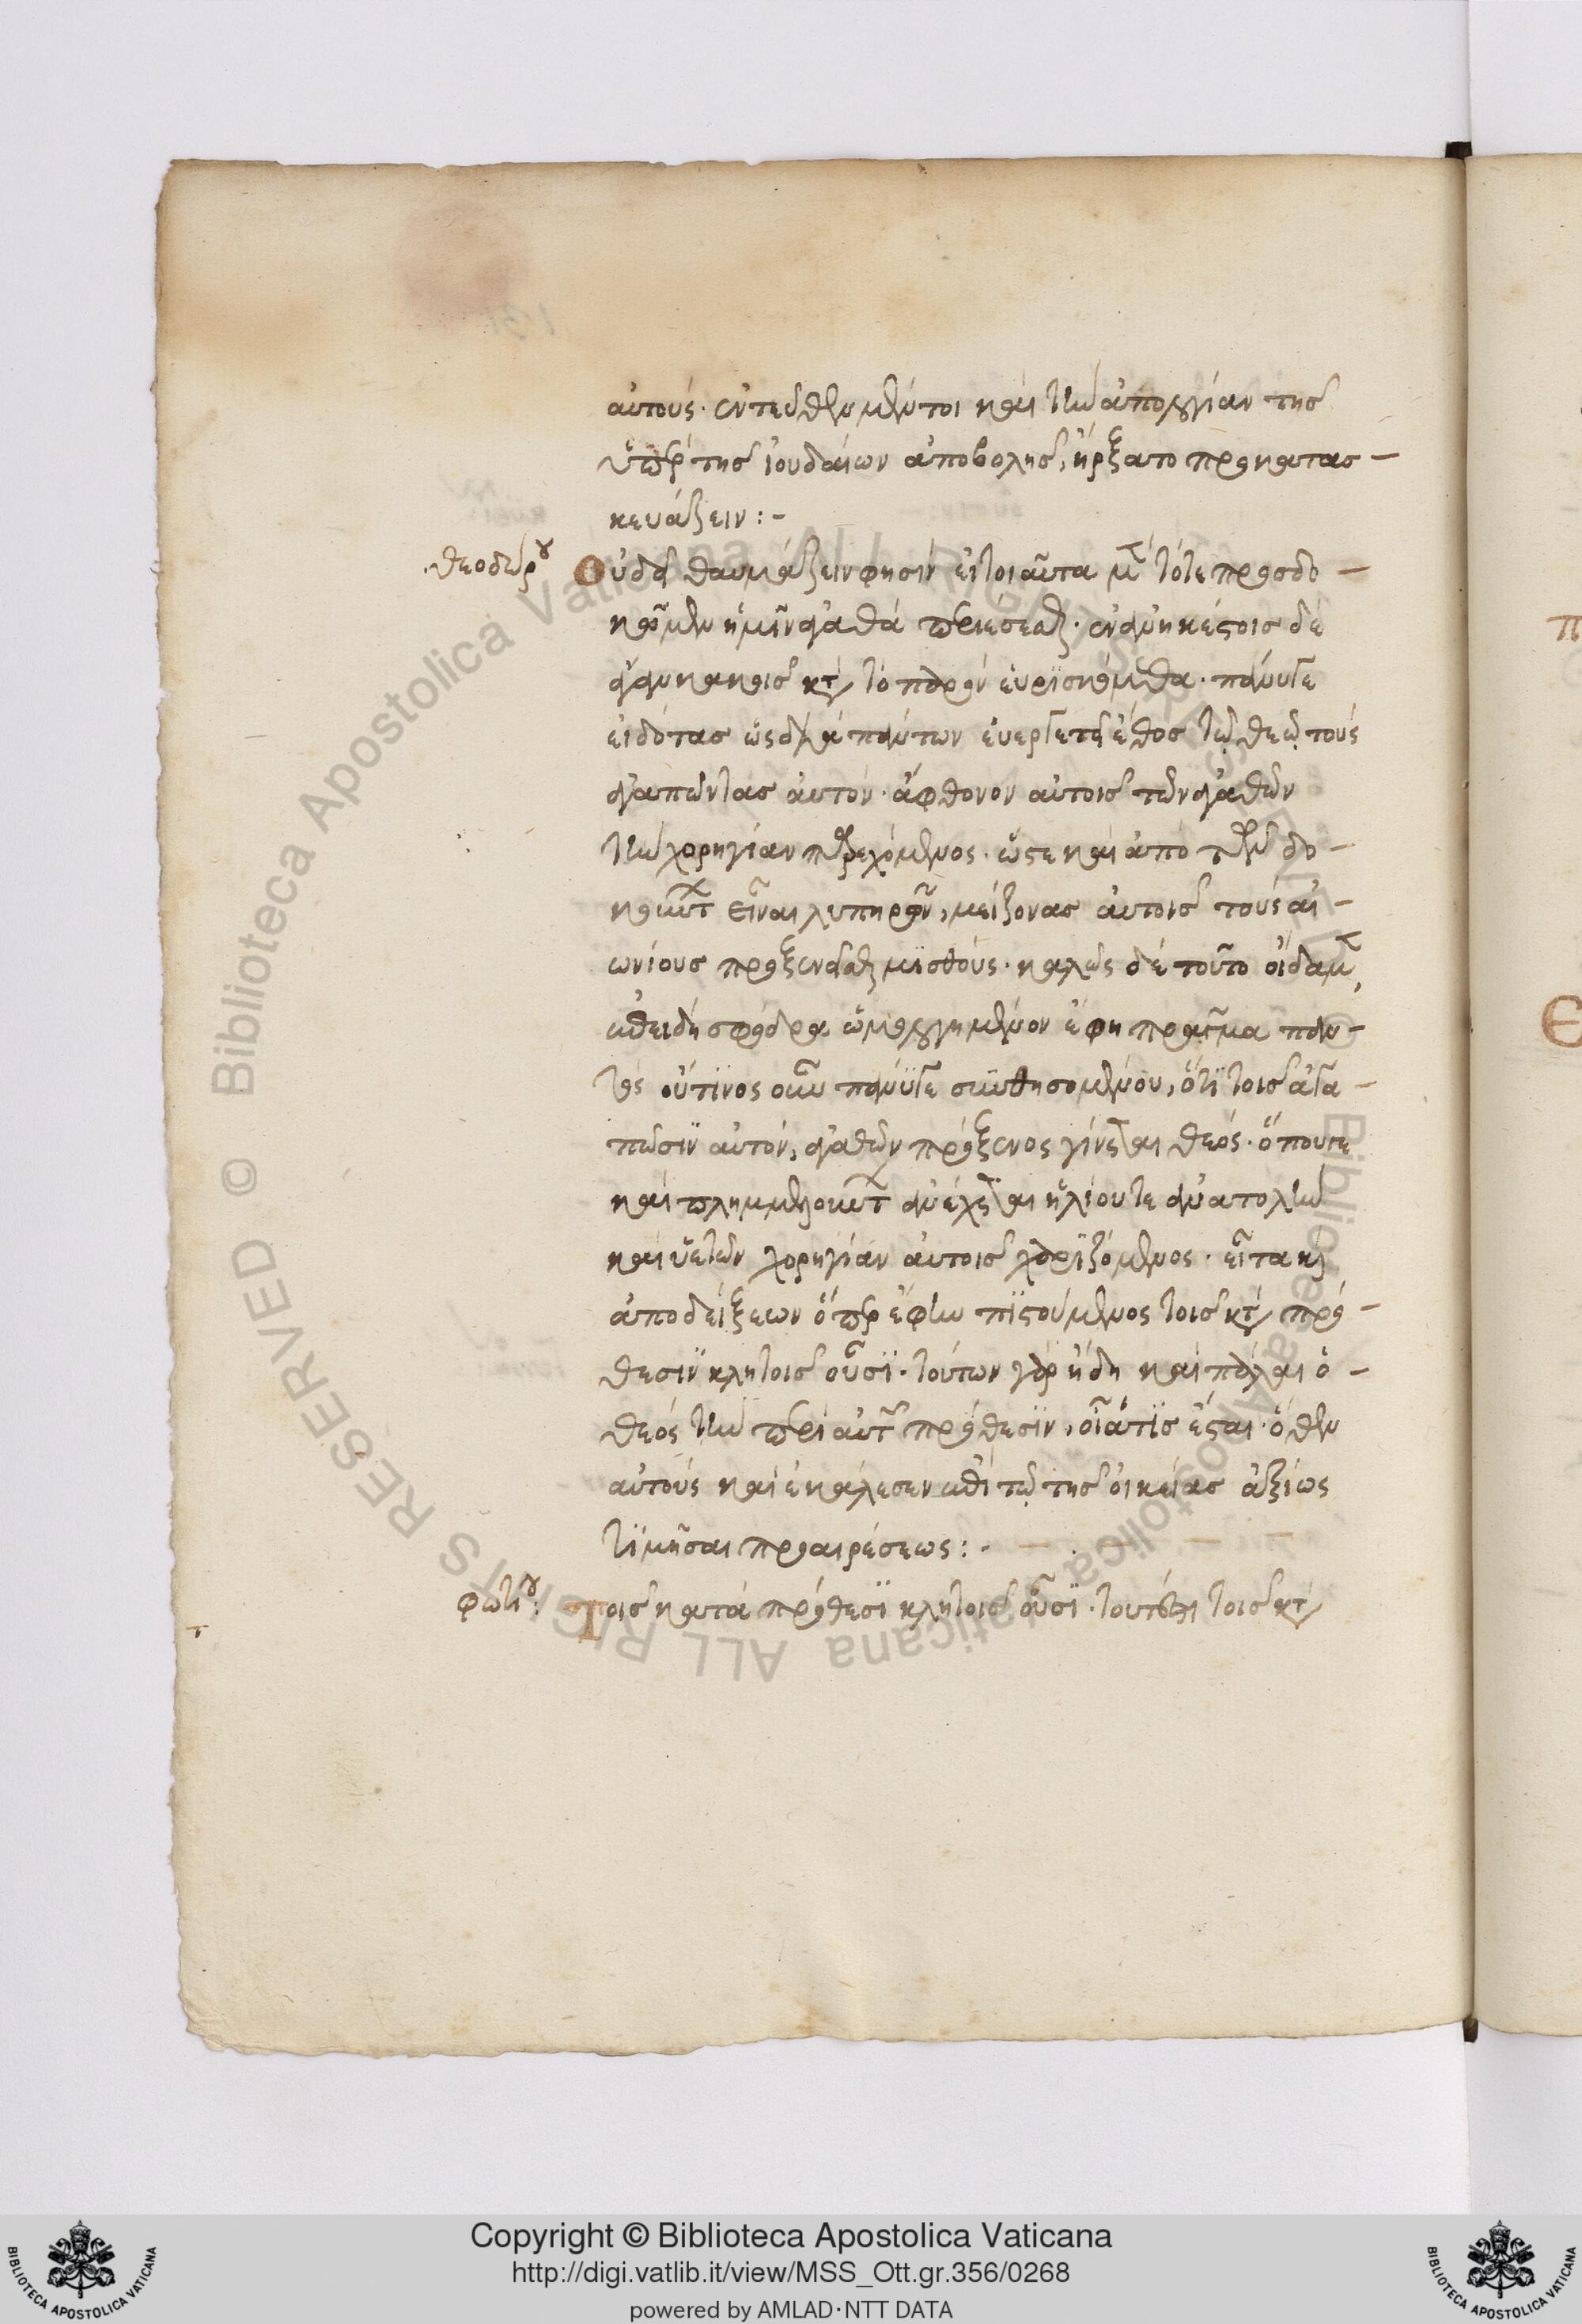 αὐτούς· ἐντεῦθεν μέντοι καὶ τὴν ἀπολογίαν τῆς
ὑπὲρ τῆς ἰουδαίων ἀποβολῆς, ἤρξατο προκατασ-
κευάζειν:-
θεοδώρου
Οὐδὲν θαυμάζειν φησὶν εἰ τοιαῦτα μετὰ τότε προσδο-
κῶμεν ἡμῖν ἀγαθὰ περιέσεσθαι· ἐν ἀνηκέστοις δὲ
ἀνάγκαις κατὰ τὸ παρὸν εὑρισκόμεθα· πάντας
εἰδότας ὡς διὰ πάντων εὐεργετεῖν ἔθος τῷ θεῷ τοὺς
ἀγαπῶντας αὐτόν· ἄφθονον αὐτοῖς τῶν ἀγαθῶν
τὴν χορηγίαν παρεχόμενος· ὥστε καὶ ἀπὸ τῶν δο-
κούντων εἶναι λυπηρῶν, μείζονας αὐτοῖς τοὺς αἰ-
ωνίους προξενεῖσθαι μισθούς· καλῶς δὲ τοῦτο οἴδαμεν,
ἐπειδὴ σφόδρα ὡμολογημένον ἔφη πρᾶγμα παν-
τὸς οὑτινοσοῦν πάντως συνθησομένου, ὅτι τοῖς ἀγα-
πῶσιν αὐτόν, ἀγαθῶν πρόξενος γίνεται θεός· ὅπου γε
καὶ πλημμελούντων ἀνέχεται ἡλίου τε ἀνατολὴν
καὶ ὑετῶν χορηγίαν αὐτοῖς χαριζόμενος· εἶτα καὶ
ἀποδείξεων ὅπερ ἔφην πιστούμενος τοῖς κατὰ πρό-
θεσιν κλητοῖς οὖσι· τούτων γὰρ ἤδη καὶ πάλαι ὁ
θεὸς τὴν περὶ αὐτῶν πρόθεσιν, οἷα τις ἔσται· ὅθεν
αὐτοὺς καὶ ἐκάλεσεν ἐπὶ τῷ τῆς οἰκείας ἀξίως
τιμῆσαι προαιρέσεως:-
φωτίου:
Τοῖς κατὰ πρόθεσι κλητοῖς οὖσι· τουτέστι τοῖς κατὰ
Copyright © Biblioteca Apostolica Vaticana
http://digi.vatlib.it/view/MSS_Ott.gr.356/0268
powered by AMLAD·NTT DATA